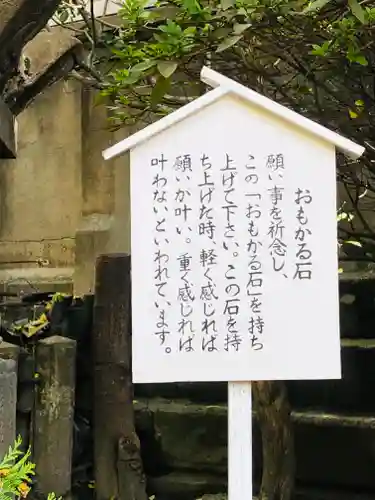 おもかる石
願い事を祈念し、
この「おもかる石」を持ち
上げて下さい。この石を持
ち上げた時、軽く感じれば
願いが叶い。重く感じれば
叶わないといわれています。